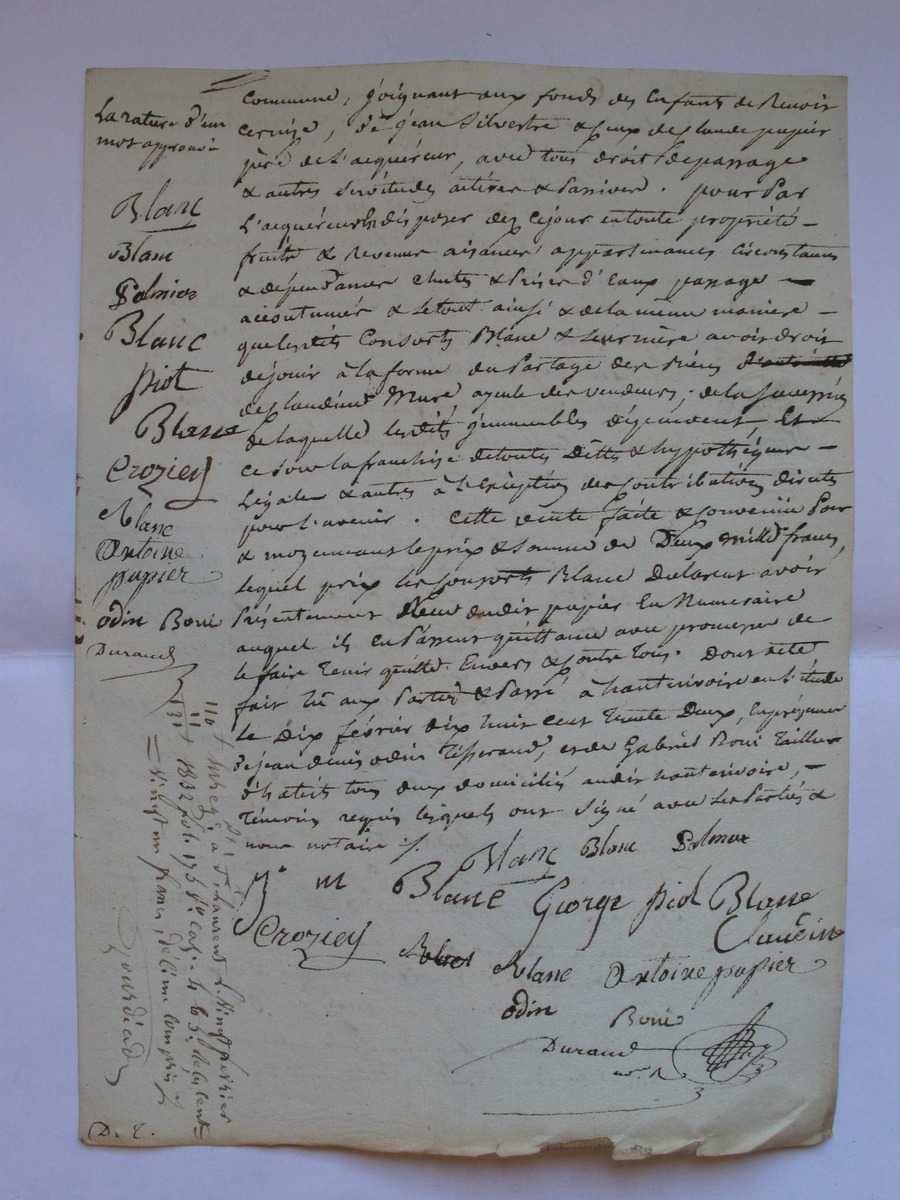 La rature d'un
mot approuvée
Blanc
Blanc
Palmier
Blanc
piot
Blanc
Croziez
Blanc
Antoine
papier
odin Boni
Durand
commune, joignant aux fonds des Enfants de Benoit
, de jean Silvestre & ceux de Claude papier
père de l'acquéreur, avec tous droits de passage
& autres servitudes actives & passives. pour par
L'acquéreur disposer dez cejour entoute propriété
fruits & revenus aisances appartenances circonstances
& dépendances chutes & prises d'eaux passage
accoutumés & letout ainsi & de la même manière
que lesdits Consorts Blanc & leur mère avoir droit
de jouir à la forme du partage des biens
de Claudine Mure ayeule des vendeurs, de la succession
de laquelle lesdits jmmeubles dépendent, Et
ce sous la franchise de toutes dettes & hypothèques
Légales & autres à l'exception des contributions directes
pour l'avenir. Cette vente faite & convenüe par
& moyennant le prix & somme de Deux mille francs,
lequel prix les consorts Blanc déclarent avoir
présentement Reçu dudit papier en Numeraire
auquel ils en passent quittance avec promesse de
le faire tenir quitte Envers & contre tous. Dont acte
fait lû aux parties & passé à hauterivoire en l'étude
Le Dix février dix huit cent trente Deux, En présence
de jean denis odin Tisserand, et de Gabriel Boni Tailleur
d'habits tous deux domiciliés audit hauterivoire,
Témoins requis lesquels ont signé avec les parties &
nous notaire ./.
Blanc Blanc Palmier
m Blanc George piot Blanc
Croziez Claudine
Blanc Antoine papier
odin Boni
Durand
110
11
131
Enreg. à St. Laurent L. Vingt février
1832 fol. 175
= Vingt un francs, décime compris
Jourdéad
D. T.